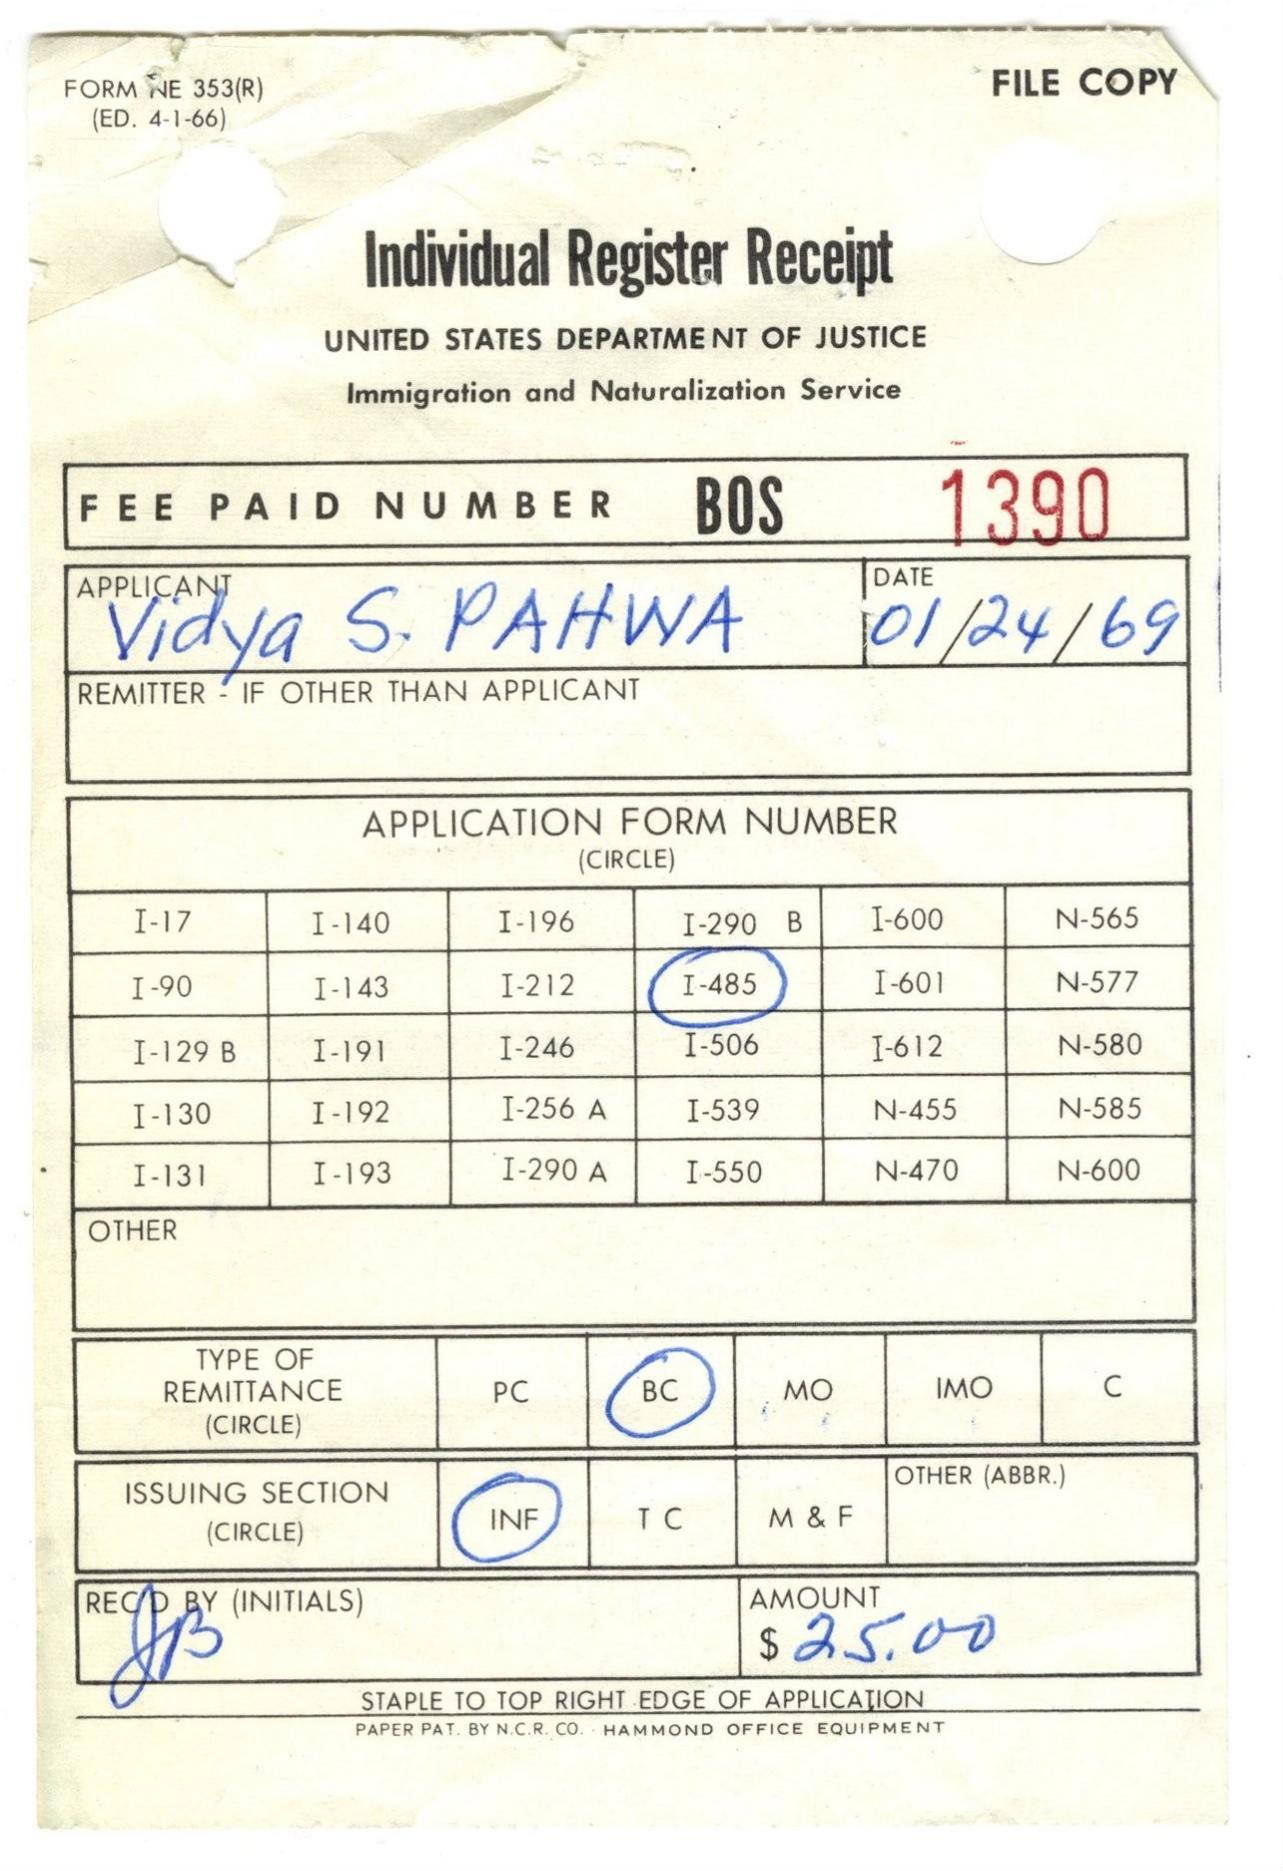 FORM NE 353(R)
(ED. 4-1-66)
FILE COPY
Individual Register Receipt
UNITED STATES DEPARTMENT OF JUSTICE
Immigration and Naturalization Service
FEE PAID NUMBER BOS 1390
APPLICANT DATE
Vidya S. PAHWA 01/24/69
REMITTER - IF OTHER THAN APPLICANT
APPLICATION FORM NUMBER
(CIRCLE)
I-17 I-140 I-196 I-290 B I-600 N-565
I-90 I-143 I-212 I-485 I-601 N-577
I-129 B I-191 I-246 I-506 I-612 N-580
I-130 I-192 I-256 A I-539 N-455 N-585
I-131 I-193 I-290 A I-550 N-470 N-600
OTHER
TYPE OF
REMITTANCE PC BC MO IMO C
(CIRCLE)
OTHER (ABBR.)
ISSUING SECTION
(CIRCLE) INF T C M & F
REC'D BY (INITIALS) AMOUNT
JB $ 25.00
STAPLE TO TOP RIGHT EDGE OF APPLICATION
PAPER PAT. BY N.C.R. CO. · HAMMOND OFFICE EQUIPMENT